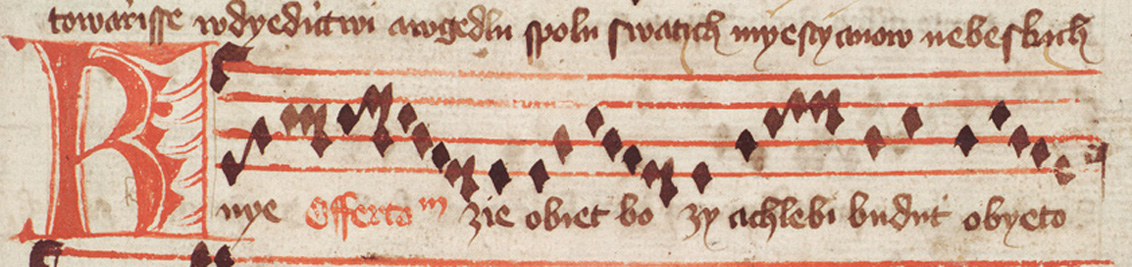 towarisse wdyedictwi awgedlu spolu swatich myesstyanow nebeskich
K
nye Offertom zie obiet bo zy achlebi budut obyeto